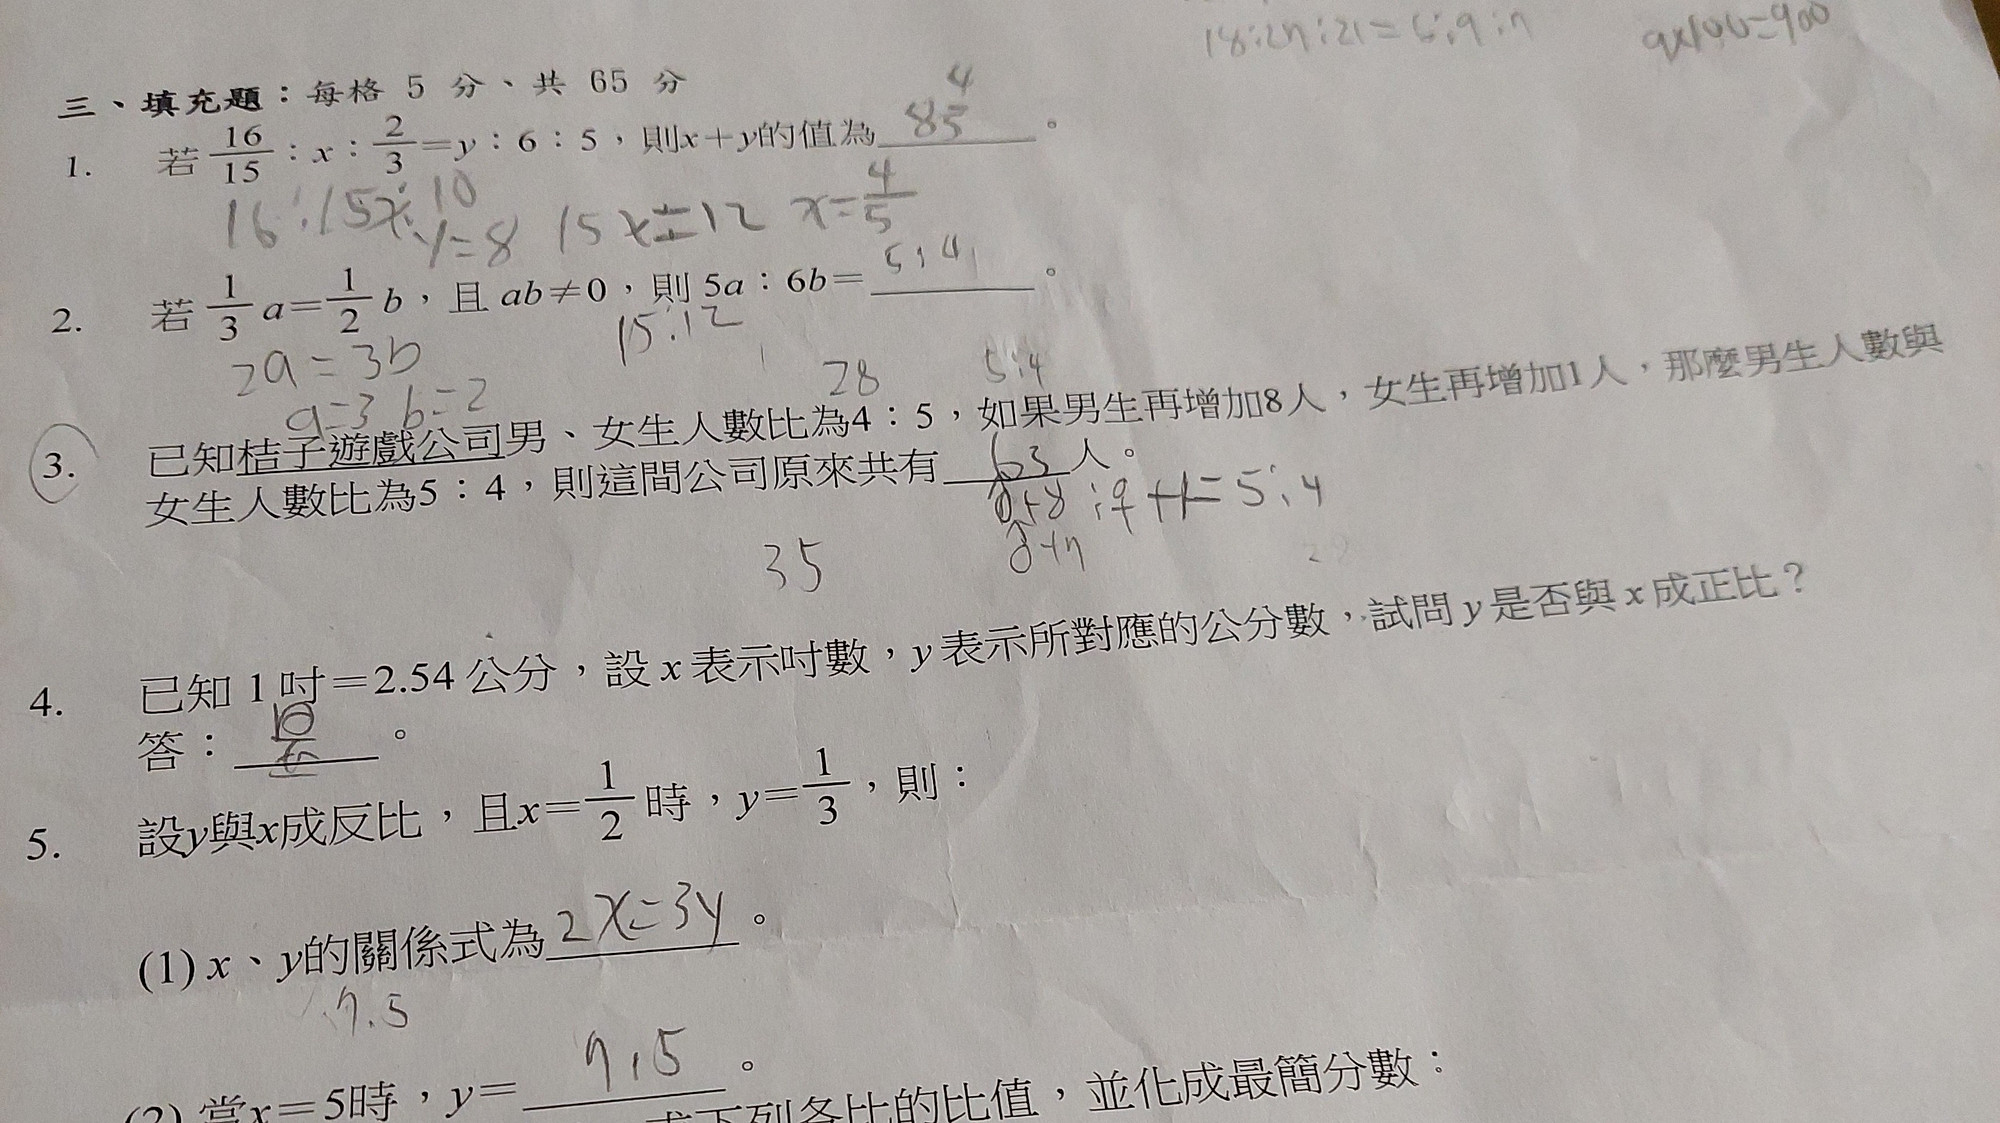 18:27:21=6:9:7
9×100=900
三、填充題：每格 5 分、共 65 分
1. 若 16/15：x：2/3＝y：6：5，則x＋y的值為 8 4/5 。
16:15x:10
y=8 15x=12 x=4/5
2. 若 1/3 a＝1/2 b，且 ab≠0，則 5a：6b＝ 5:4 。
15:12
2a=3b
a=3 b=2
28 5:4
3. 已知桔子遊戲公司男、女生人數比為4：5，如果男生再增加8人，女生再增加1人，那麼男生人數與
女生人數比為5：4，則這間公司原來共有 63 人。
+8:9+1=5:4
+7
35
4. 已知 1 吋＝2.54 公分，設 x 表示吋數，y 表示所對應的公分數，試問 y 是否與 x 成正比？
答： 。
5. 設y與x成反比，且x＝1/2 時，y＝1/3，則：
(1) x、y的關係式為 2x=3y 。
7.5
(2) 當x＝5時，y＝ 7.5 。
求下列各比的比值，並化成最簡分數：